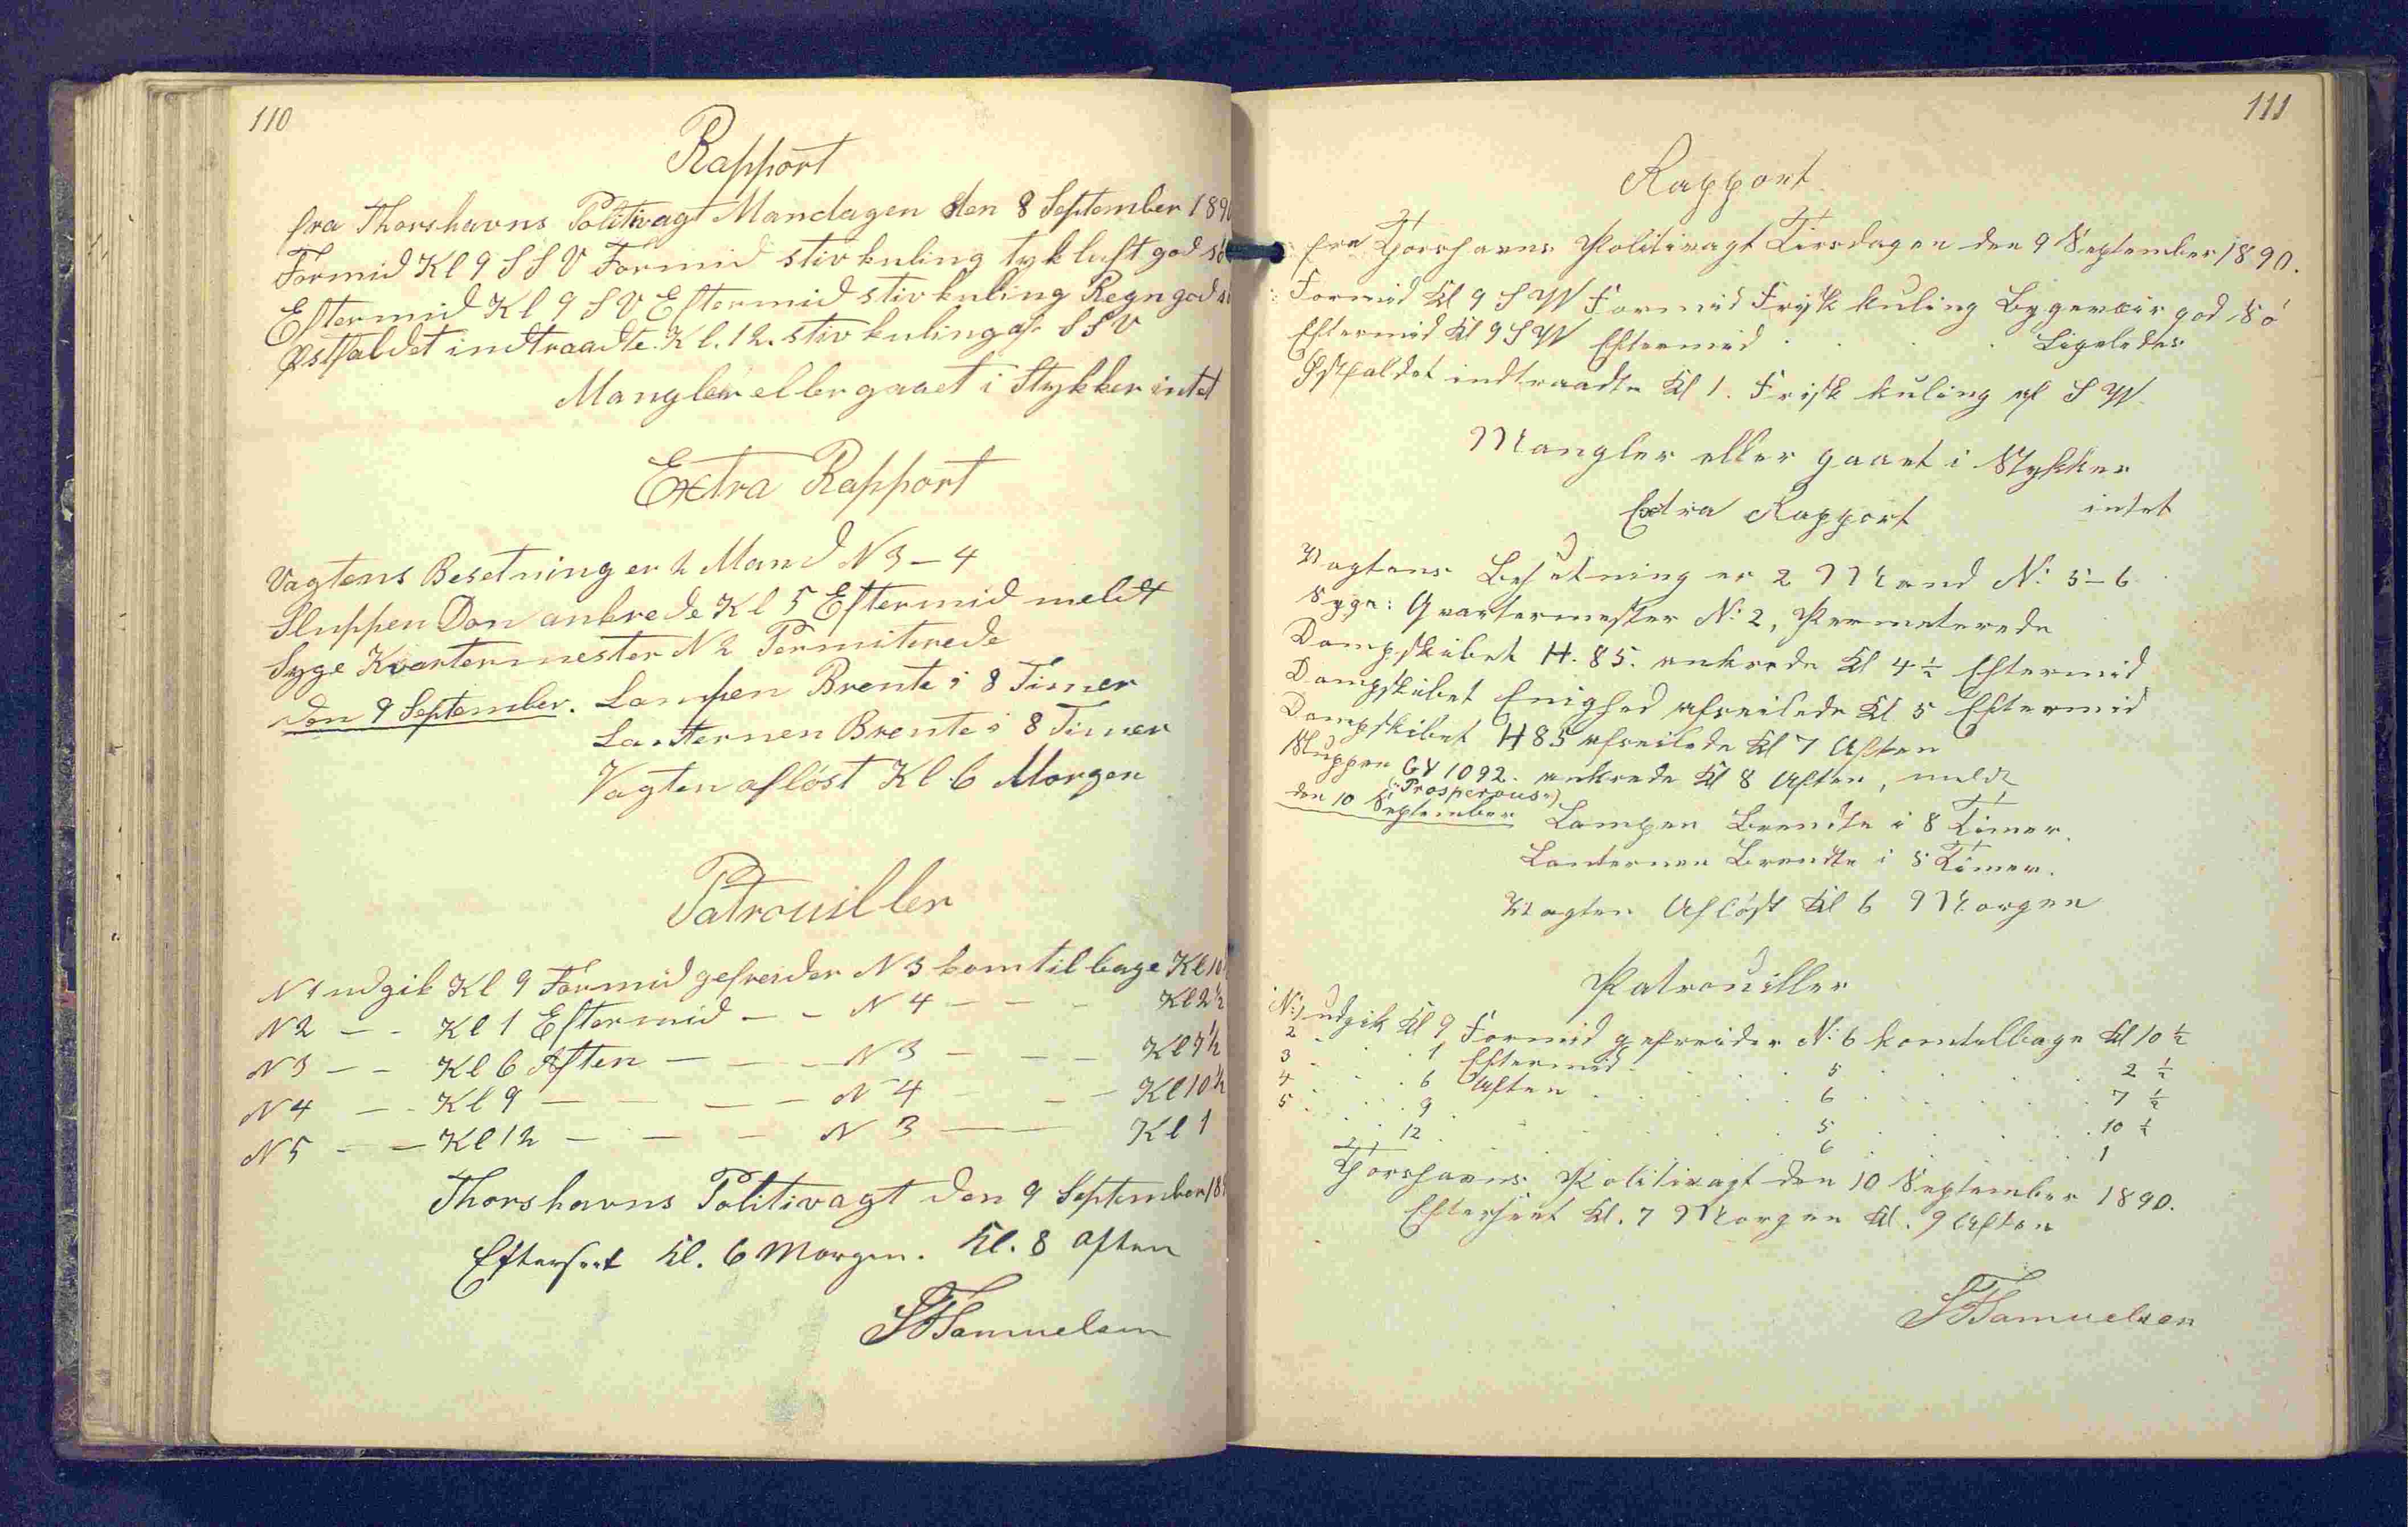 110
Rapport
fra Thorshavns Politivagt Mandagen den 8 September 1890
Formid Kl 9 S S V Formid stiv kuling tyk luft god
Eftermid Kl 9 S V Eftermid stiv kuling Regn god
Østfaldet indtraadte Kl. 12. stiv kuling af S S V
Mangler eller gaaet i Stykker intet
Extra Rapport
Vagtens Besetning er 2 Mand N 3 – 4
Sluppen Don ankrede Kl 5 Eftermid meldt
Syge Kvartermester N 2 Permiterede
den 9 September. Lampen Brente i 8 Timer
Lanternen Brente i 8 Timer
Vagten afløst Kl 6 Morgen
Patrouiller
N 1 udgik Kl 9 Formid gefreider N 3 kom tilbage Kl 10
N 2 – – Kl 1 Eftermid – – N 4 – – – Kl 2 ½
N 3 – – Kl 6 Aften – – – N 3 – – – Kl 7 ½
N 4 – – Kl 9 – – – – N 4 – – – Kl 10 ½
N 5 – – Kl 12 – – – N 3 – – Kl 1
Thorshavns Politivagt den 9 September 18
Efterseet Kl. 6 Morgen. Kl. 8 Aften
Samuelsen
111
Rapport
fra Thorshavns Politivagt Tirsdagen den 9 September 1890.
Formid Kl 9 S W Formid Frisk kuling Bygeveir god Sö
Eftermid Kl 9 S W Eftermid . . . Ligeledes
Østfaldet indtraadte Kl 1. Frisk kuling af S W
Mangler eller gaaet i Stykker
intet
Extra Rapport
Vagtens Besetning er 2 Mand N: 5 – 6
Syge: Qvartermester N: 2, Permeterede
Dampskibet H. 85. ankrede Kl 4 ½ Eftermid
Dampskibet Enighed afseilede Kl 5 Eftermid
Dampskibet H 85 afseilede Kl 7 Aften
Sluppen GY 1092. ankrede Kl 8 Aften, meldt
("Prosperous")
den 10 September Lampen Brendte i 8 Timer.
Lanternen Brendte i 8 Timer.
Vagten Afløst Kl 6 Morgen
Patrouiller
N: 1 udgik Kl 9 Formid gefreider N: 6 kom telbage Kl 10 ½
2 . . . 1 Eftermid . . . 5 . . . 2 ½
3 . . . 6 Aften . . . 6 . . . 7 ½
4 . . . 9 . . . 5 . . . 10 ½
5 . . . 12 . . . 6 . . . 1
Thorshavns Politivagt den 10 September 1890.
Efterseet Kl. 7 Morgen Kl. 9 Aften
Samuelsen